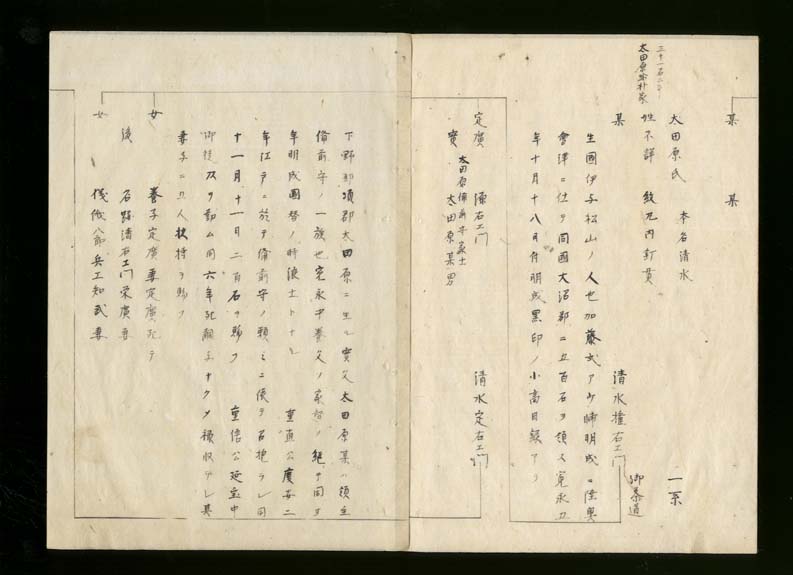 某
某
三十一石二斗
太田原
太田原氏 本名清水 一系
姓不詳 紋丸内釘貫
某 清水権右エ門
生國伊与松山ノ人也加藤式ア少輔明成ニ陸奥
會津ニ仕テ同國大沼郡ニ五百石ヲ領ス寛永五
年十月十八月付明成黒印ノ小高目録アリ
定廣 源右エ門 清水定右エ門
實 太田原備前守家士 太田原某男
下野那須郡太田原ニ生ル實父太田原某ハ領主
備前守ノ一族也寛永中養父ノ家督ノ継テ同
年明成國替ノ時浪士トナル 重直公慶安二
年江戸ニ於テ備前守ノ頼ミニ依テ召抱ラレ同
十一月十一日二百石ヲ賜フ 重信公延宝中
御徒ヲ勤ム同六年死嗣子ナクメ禄収ラレ其
妻子ニ五人扶持ヲ賜フ
女 養子定廣妻定廣死テ
後 石路清右エ門栄廣妻
女 儀俄八郎兵エ知武妻